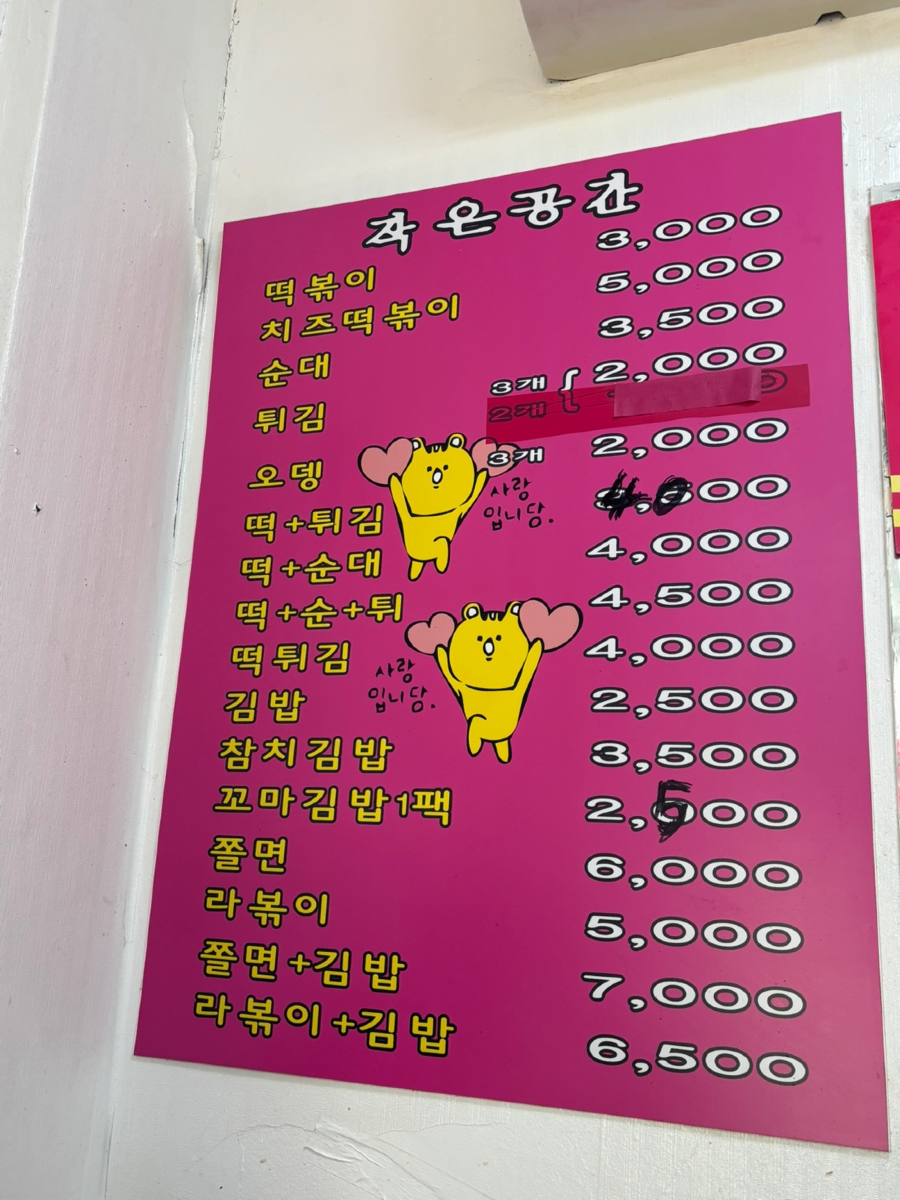 작은공간
떡볶이 3,000
치즈떡볶이 5,000
순대 3,500
튀김 3개 { 2,000
2개
오뎅 3개 2,000
사랑
입니당.
떡+튀김 4,000
떡+순대 4,000
떡+순+튀 4,500
떡튀김 4,000
사랑
입니당.
김밥 2,500
참치김밥 3,500
꼬마김밥1팩 2,500
쫄면 6,000
라볶이 5,000
쫄면+김밥 7,000
라볶이+김밥 6,500